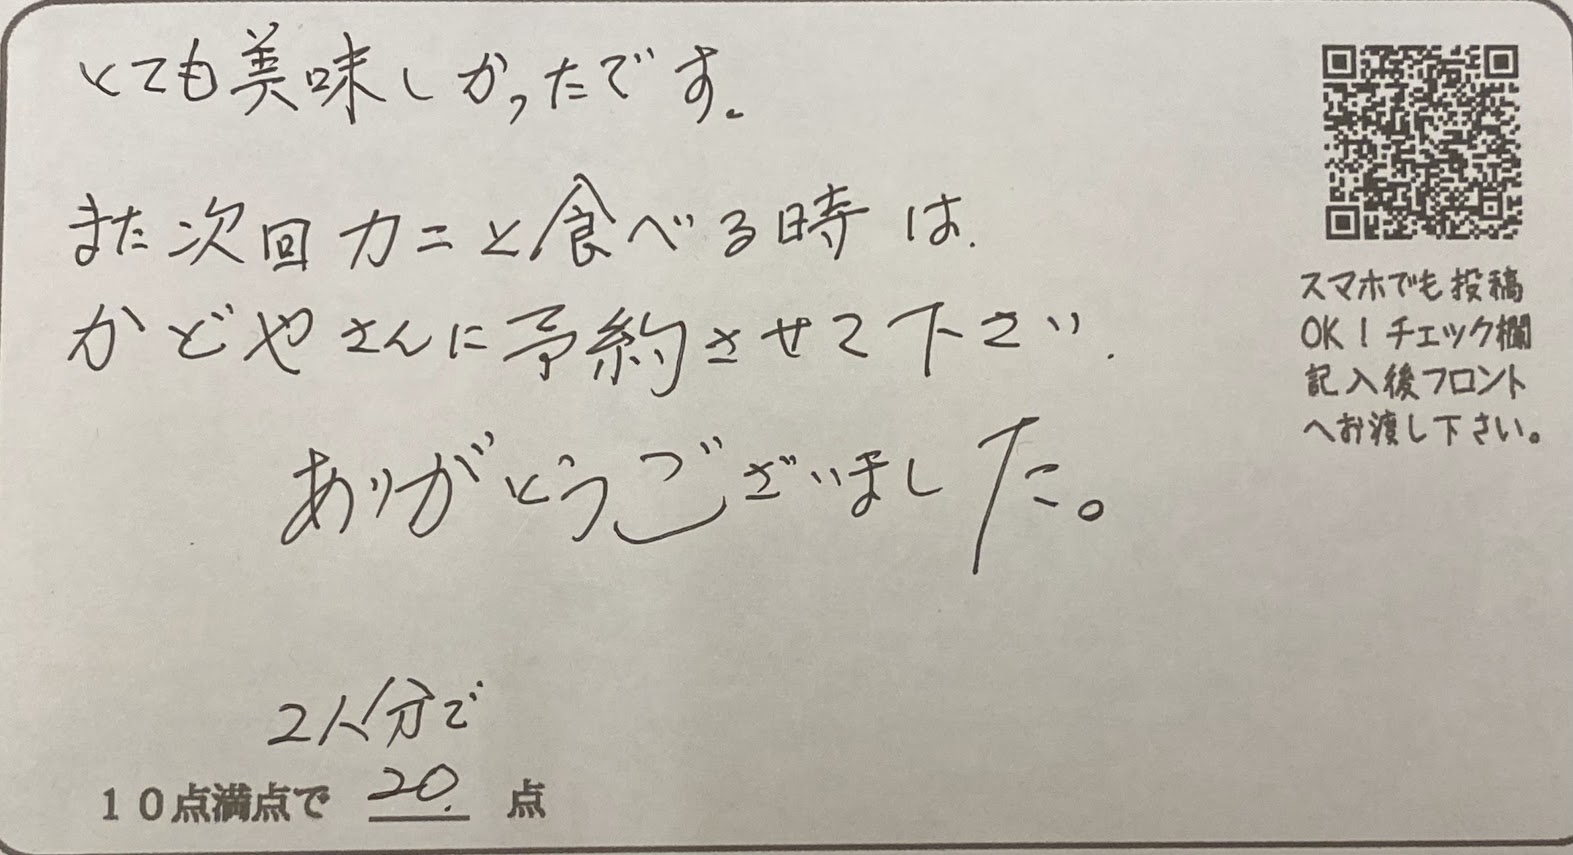 とても美味しかったです。
また次回カニを食べる時は、
かどやさんに予約させて下さい。
ありがとうございました。
スマホでも投稿
OK!チェック欄
記入後フロント
へお渡し下さい。
2人分で
10点満点で 20. 点